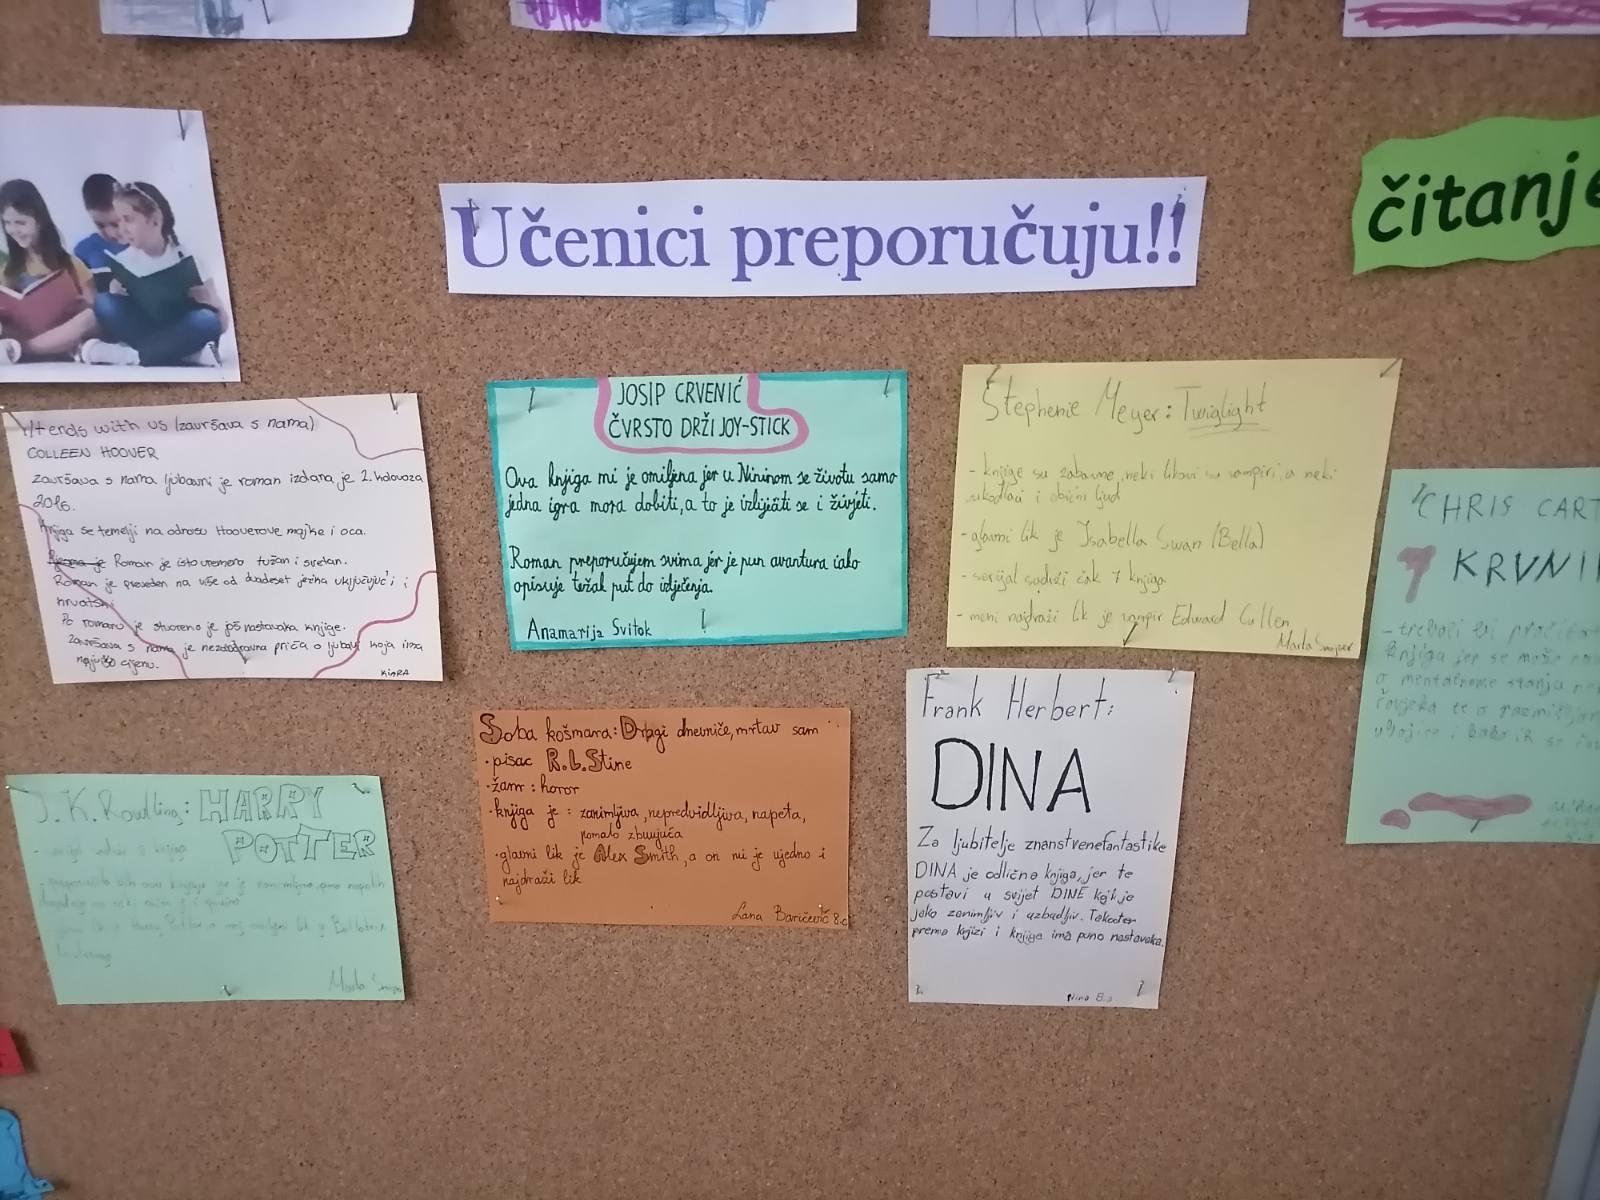 Učenici preporučuju!!
čitanje
It ends with us (završava s nama)
COLLEEN HOOVER
završava s nama ljubavni je roman izdana je 2. kolovoza
2016.
Knjiga se temelji na odnosu Hooverove majke i oca.
Roman je istovremeno tužan i svetan.
Roman je preveden na više od dvadeset jezika uključujući i
hrvatski
Po romanu je stvoreno je još nastavaka knjige.
Završava s nama je nezaboravna priča o ljubavi koja ima
najvišu cijenu.
KIARA
JOSIP CRVENIĆ
ČVRSTO DRŽI JOY-STICK
Ova knjiga mi je omiljena jer u Nininom se životu samo
jedna igra mora dobiti, a to je izliječiti se i živjeti.
Roman preporučujem svima jer je pun avantura iako
opisuje težak put do izlječenja.
Anamarija Svitok
Stephenie Meyer: Twiglight
- knjige su zabavne, neki likovi su vampiri, a neki
vukodlaci i obični ljudi
- glavni lik je Isabella Swan (Bella)
- serijal sadrži čak 7 knjiga
- meni najdraži lik je vampir Edward Cullen
Marta
CHRIS CART
KRVNI
- trebali bi
knjiga jer se može
o mentalnome stanju
čovjeka te o
ubojice i kako ih se
J. K. Rowling: HARRY
POTTER
Marta
Soba košmara: Dragi dnevniče, mrtav sam
• pisac R.L.Stine
• žanr: horor
• knjiga je: zanimljiva, nepredvidljiva, napeta,
pomalo zbunjujuća
• glavni lik je Alex Smith, a on mi je ujedno i
najdraži lik
Lana Baričević 8.c
Frank Herbert:
DINA
Za ljubitelje znanstvenefantastike
DINA je odlična knjiga, jer te
postavi u svijet DINE koji je
jako zanimljiv i uzbudljiv. Također
prema knjizi i knjige ima puno nastavaka.
Nina 8.